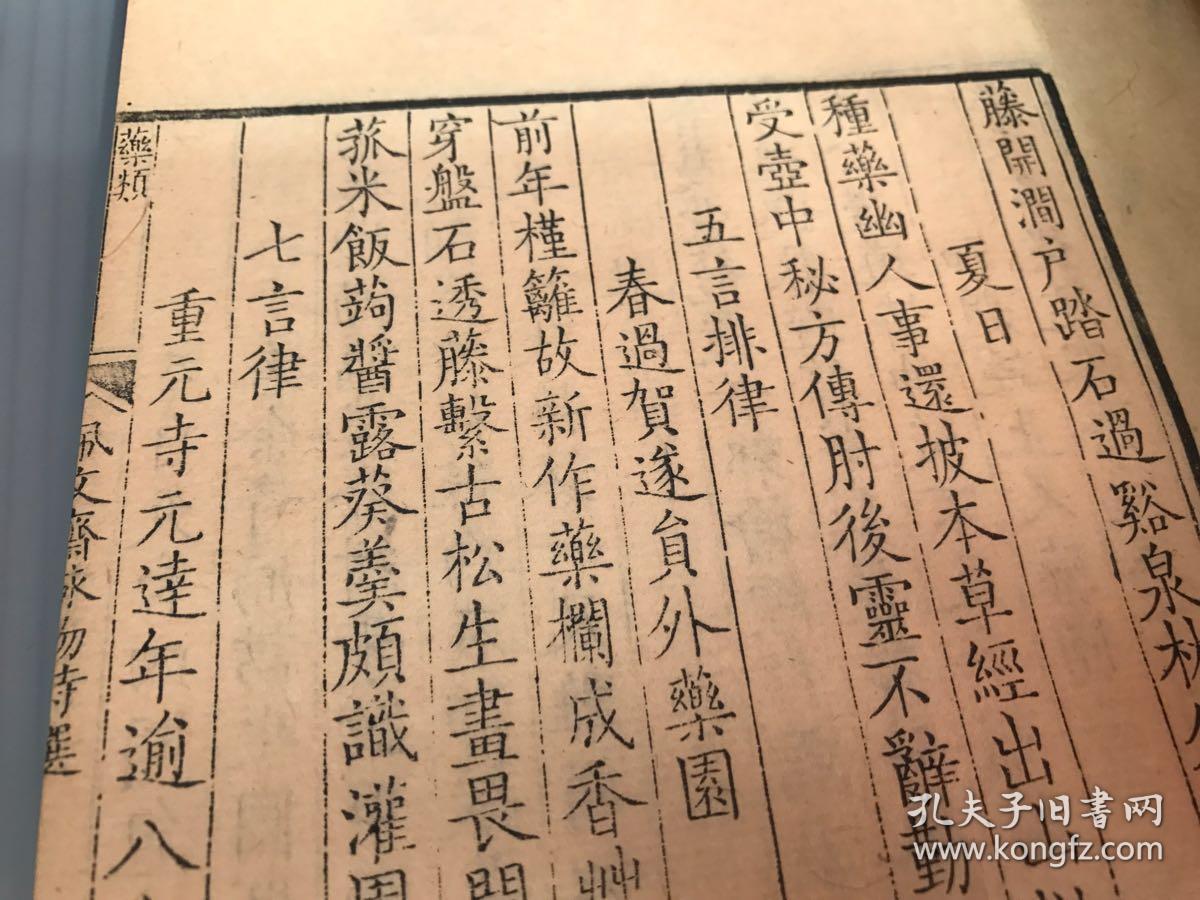 藤開澗户踏石過谿泉林
夏日
種藥幽人事還披本草經出山
受壺中秘方傳肘後靈不辭勤
五言排律
春過賀遂貟外藥園
前年槿籬故新作藥欄成香艸
穿盤石透藤繫古松生畫畏開
菰米飯蒟醬露葵羹頗識灌園
七言律
重元寺元達年逾八
藥類
佩文齋詠物詩選
孔夫子旧书网
www.kongfz.com